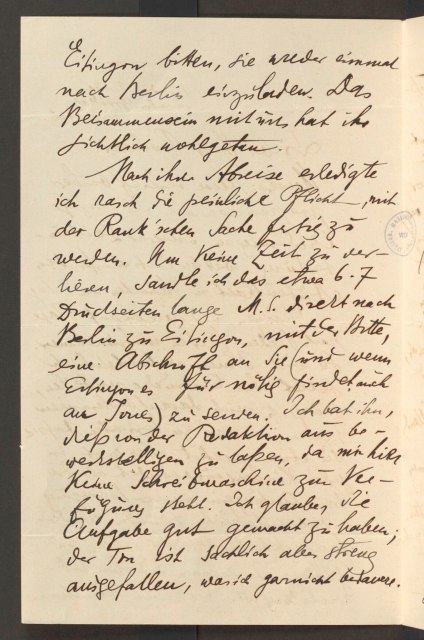 Eitingon bitten, sie wieder einmal
nach Berlin einzuladen. Das
Beisammensein mit uns hat ihr
sichtlich wohlgetan.
Nach ihrer Abreise erledigte
ich rasch die peinliche Pflicht, mit
der Rank'schen Sache fertig zu
werden. Um keine Zeit zu ver-
lieren, sandte ich das etwa 6-7
Druckseiten lange M.S. direkt nach
Berlin zu Eitingon, mit der Bitte,
eine Abschrift an Sie (und wenn
Eitingon es für nötig findet auch
an Jones) zu senden. Ich bat ihn,
dies von der Redaktion aus be-
werkstelligen zu laßen, da mir hier
keine Schreibmaschine zur Ver-
fügung steht. Ich glaube, die
Aufgabe gut gemacht zu haben;
der Ton ist sachlich aber streng
ausgefallen, was ich garnicht bedauere.